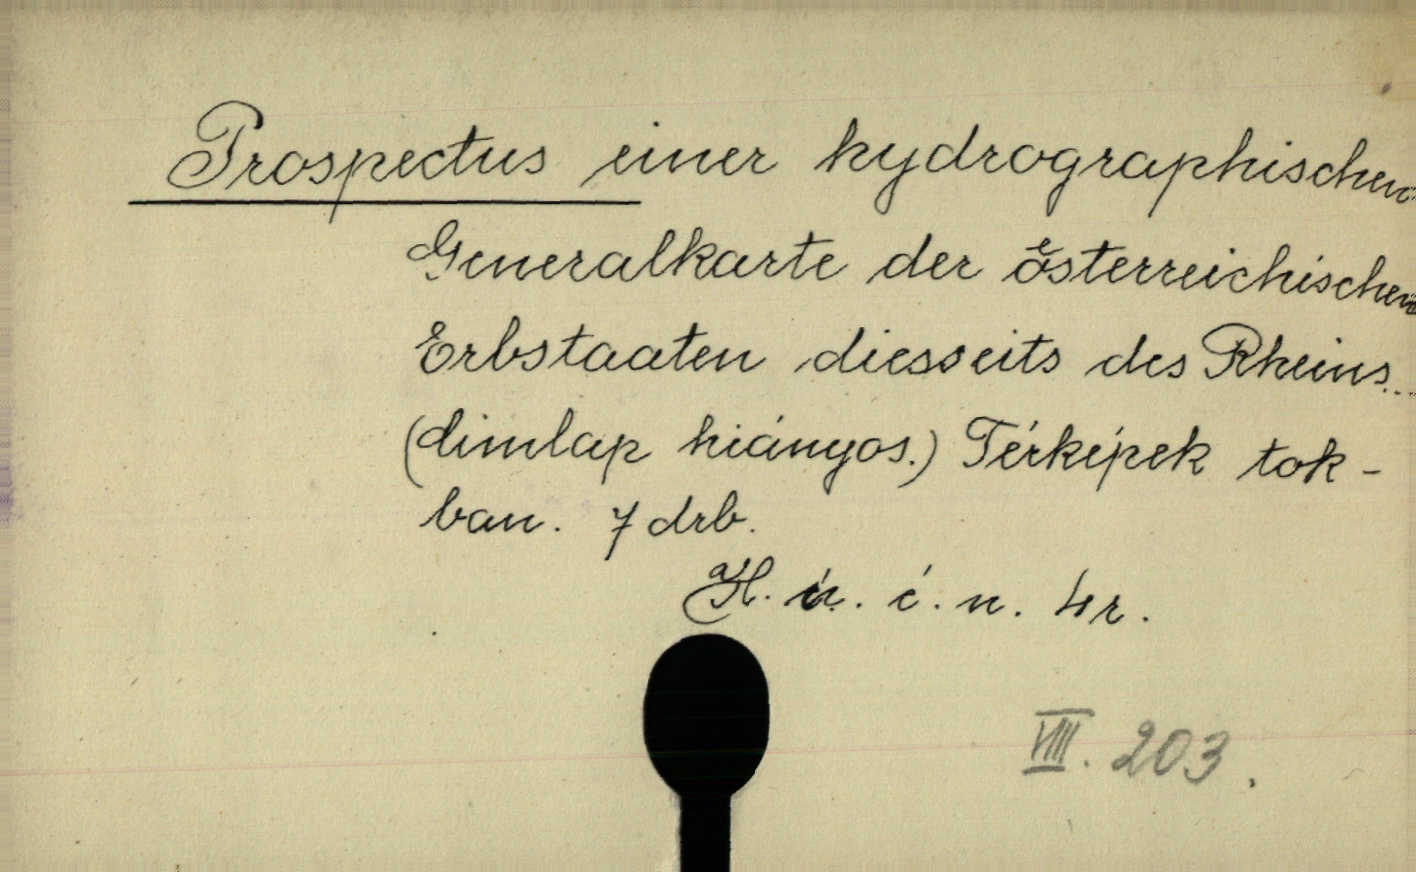 Prospectus einer hydrographischen
Generalkarte der österreichischen
Erbstaaten diesseits des Rheins...
(címlap hiányos.) Térképek tok-
ban. 7 drb.
H. és é. n. 4r.
VIII. 203.